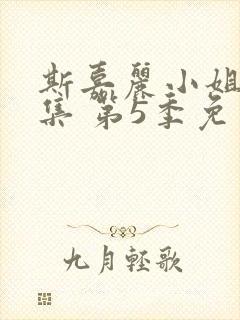 斯嘉麗小姐
集 第5季免
九月輕歌